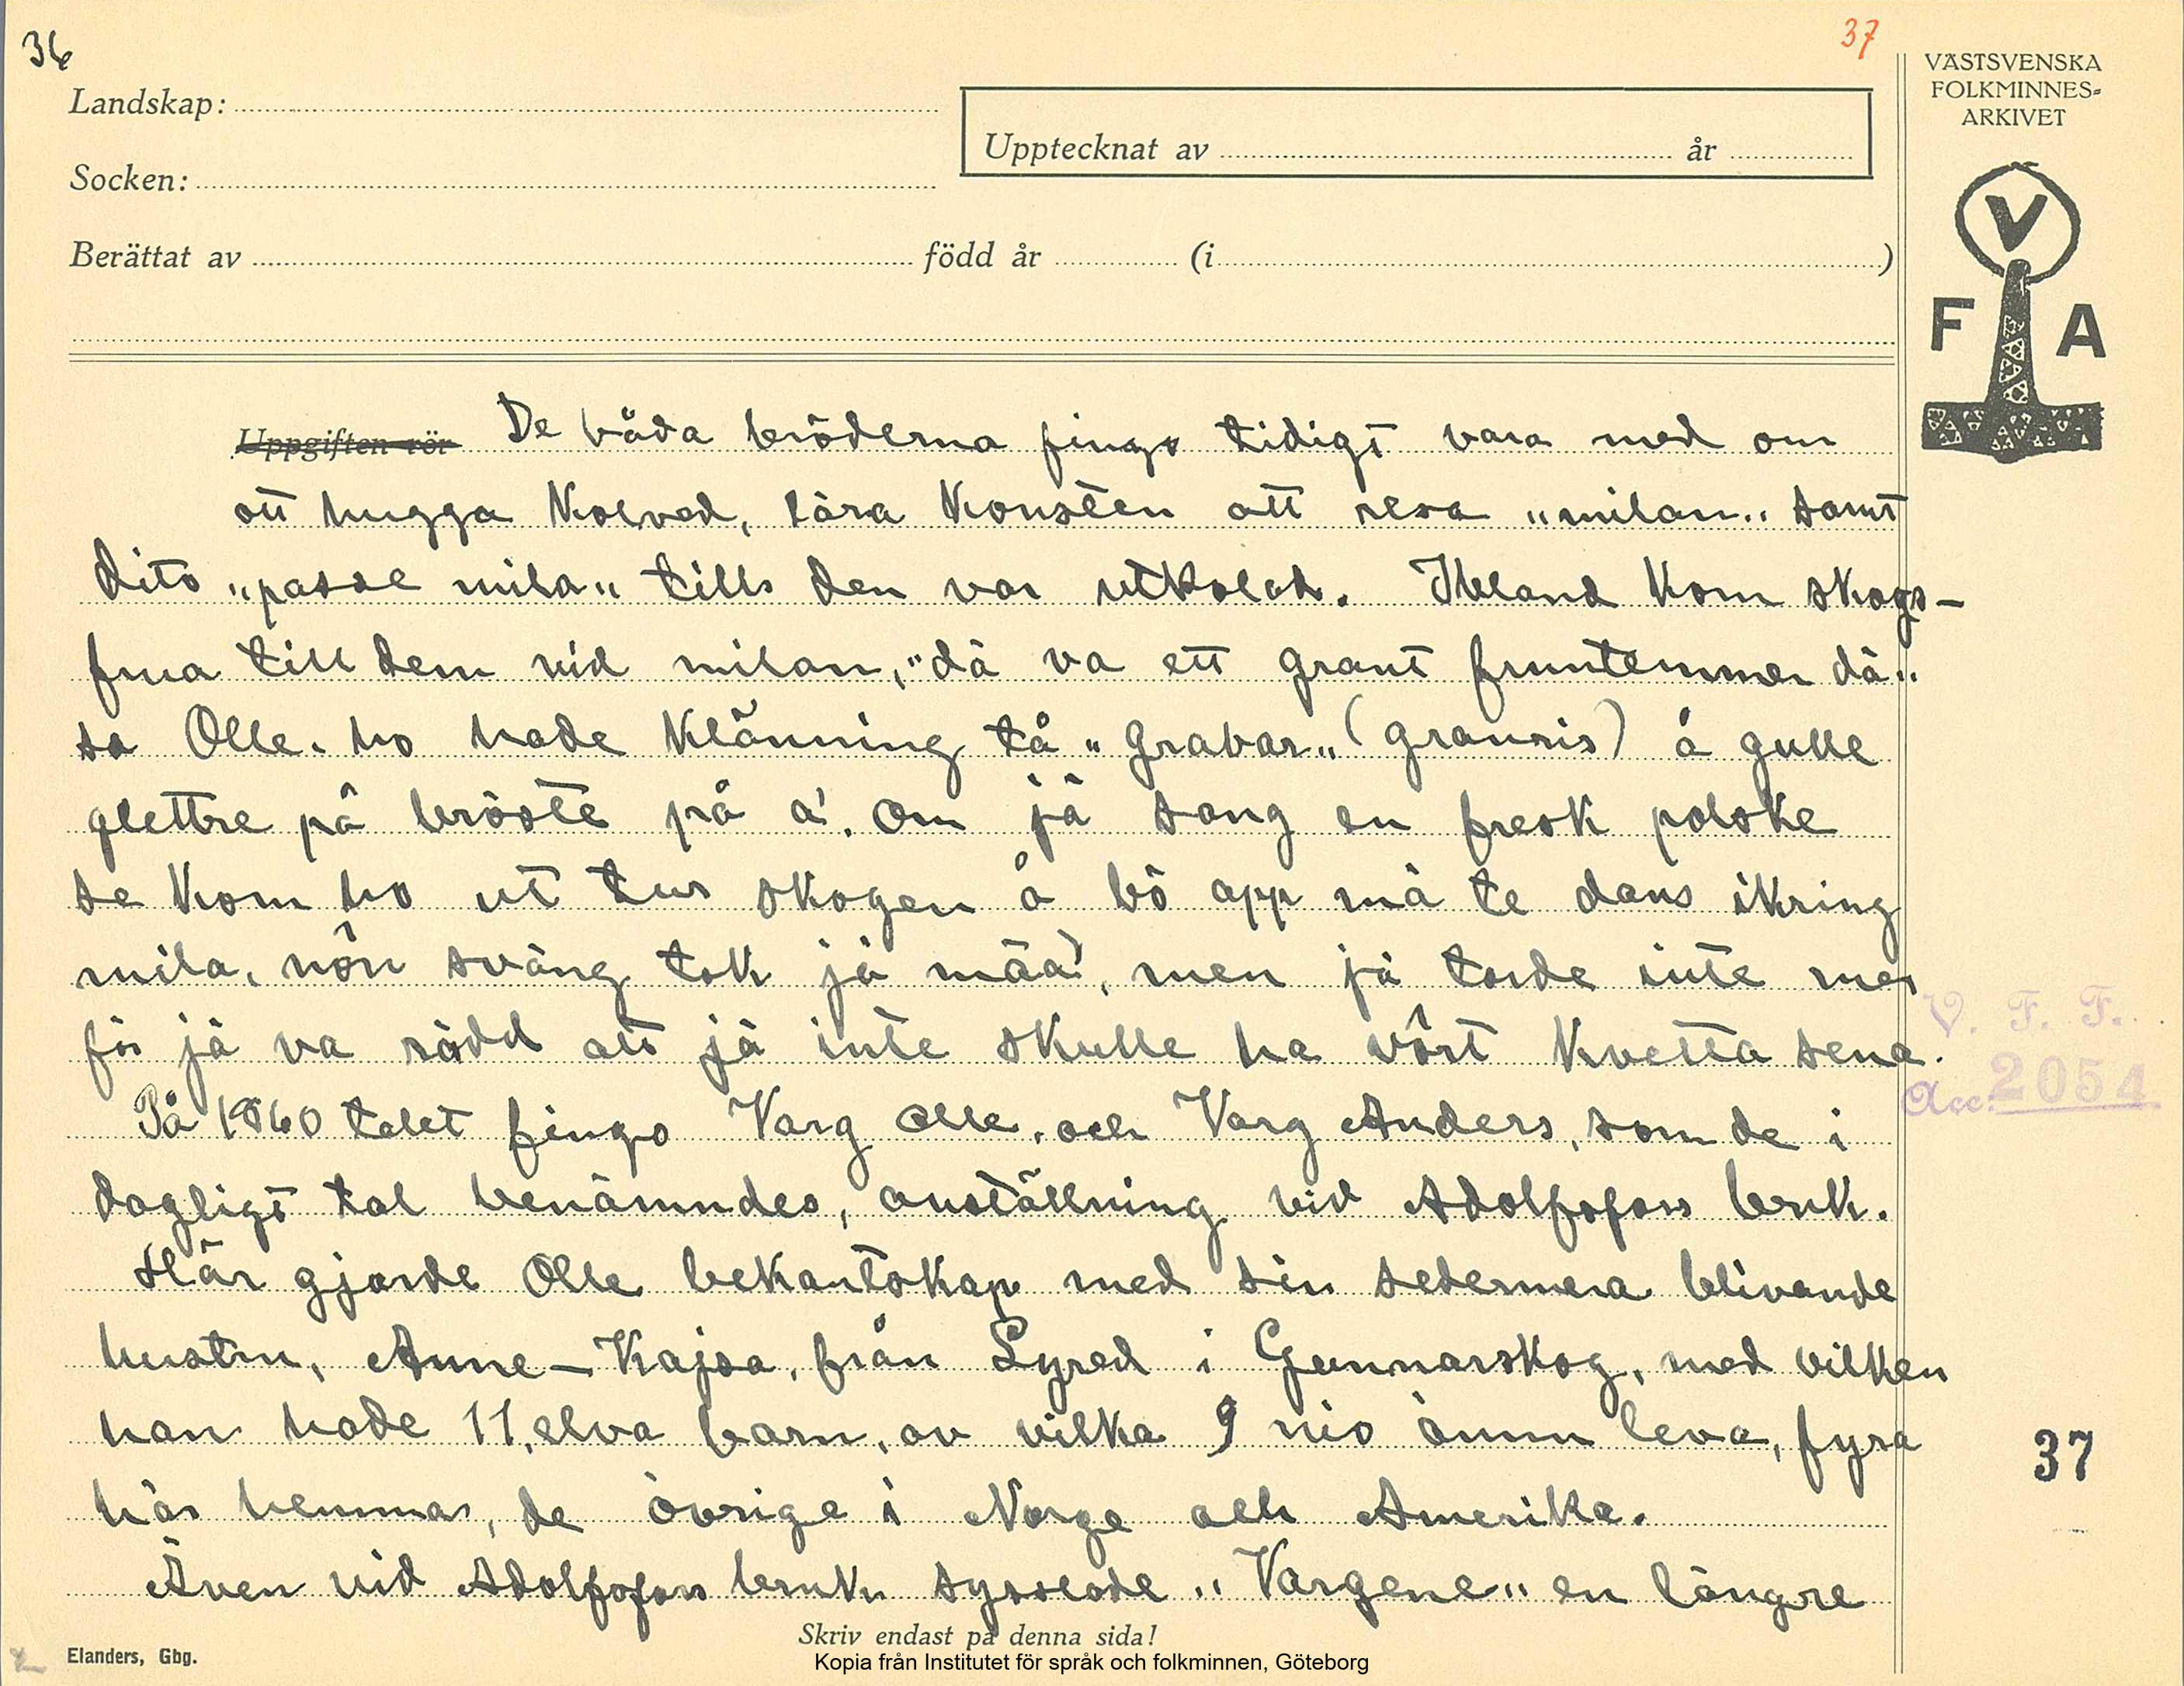 36
37
VÄSTSVENSKA
FOLKMINNES-
ARKIVET
Landskap:
Upptecknat av år
Socken:
Berättat av född år (i )
V
F A
Uppgiften rör De båda bröderna fingo tidigt vara med om
att hugga kolved, lära konsten att resa "milan" samt
dito "passe mila" tills den var utkolad. Ibland kom skogs-
frua till dem vid milan, "dä va ett grant fruntemmer dä"
sa Olle. ho hade klänning tå "grabar" (granris) å gulle
glettre på bröste på a'. Om jä sang en fresk polske
se kom ho ut tur skogen å bö app mä te dans ikring
mila, nôn sväng tok jä mää', men jä torde inte mer
för jä va rädd att jä inte skulle ha vôrt kvetta sena.
På 1860 talet fingo Varg Olle, och Varg Anders, som de i
dagligt tal benämndes, anställning vid Adolfsfors bruk.
Här gjorde Olle bekantskap med sin sedermera blivande
hustru, Anne-Kajsa, från Lyred i Gunnarskog, med vilken
han hade 11, elva barn, av vilka 9 nio ännu leva, fyra
här hemma, de övriga i Norge och Amerika.
Även vid Adolfsfors bruk sysslade "Vargene" en längre
V. F. F.
Acc. 2054
37
Skriv endast på denna sida!
Elanders, Gbg.
Kopia från Institutet för språk och folkminnen, Göteborg